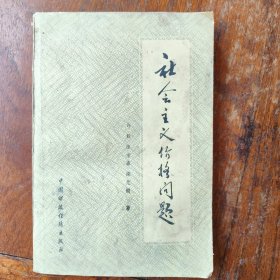 社会主义价格问题
著
中国财政经济出版社